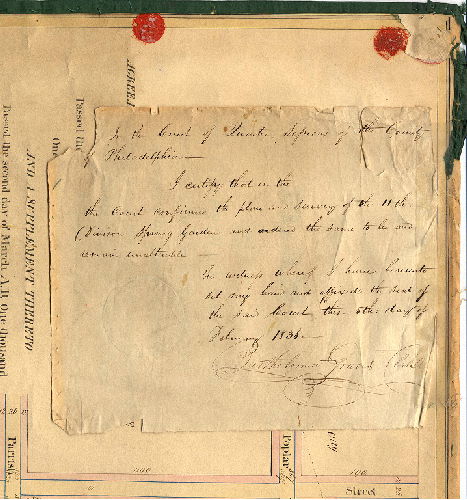 In the Court of Quarter Sessions of the County
Philadelphia
I certify that on the
the Court confirmed the plan and survey of the 11th
Division Spring Garden and ordered the same to be and
remain unalterable
In witness whereof I have hereunto
set my hand and affixed the seal of
the said Court this 5th day of
February 1835
Bartholomew Graves Clerk
AND A SUPPLEMENT THERETO
Passed the second day of March, A.D. One thousand
Passed the
AGREE
Parrish
Poplar
Street
400
400